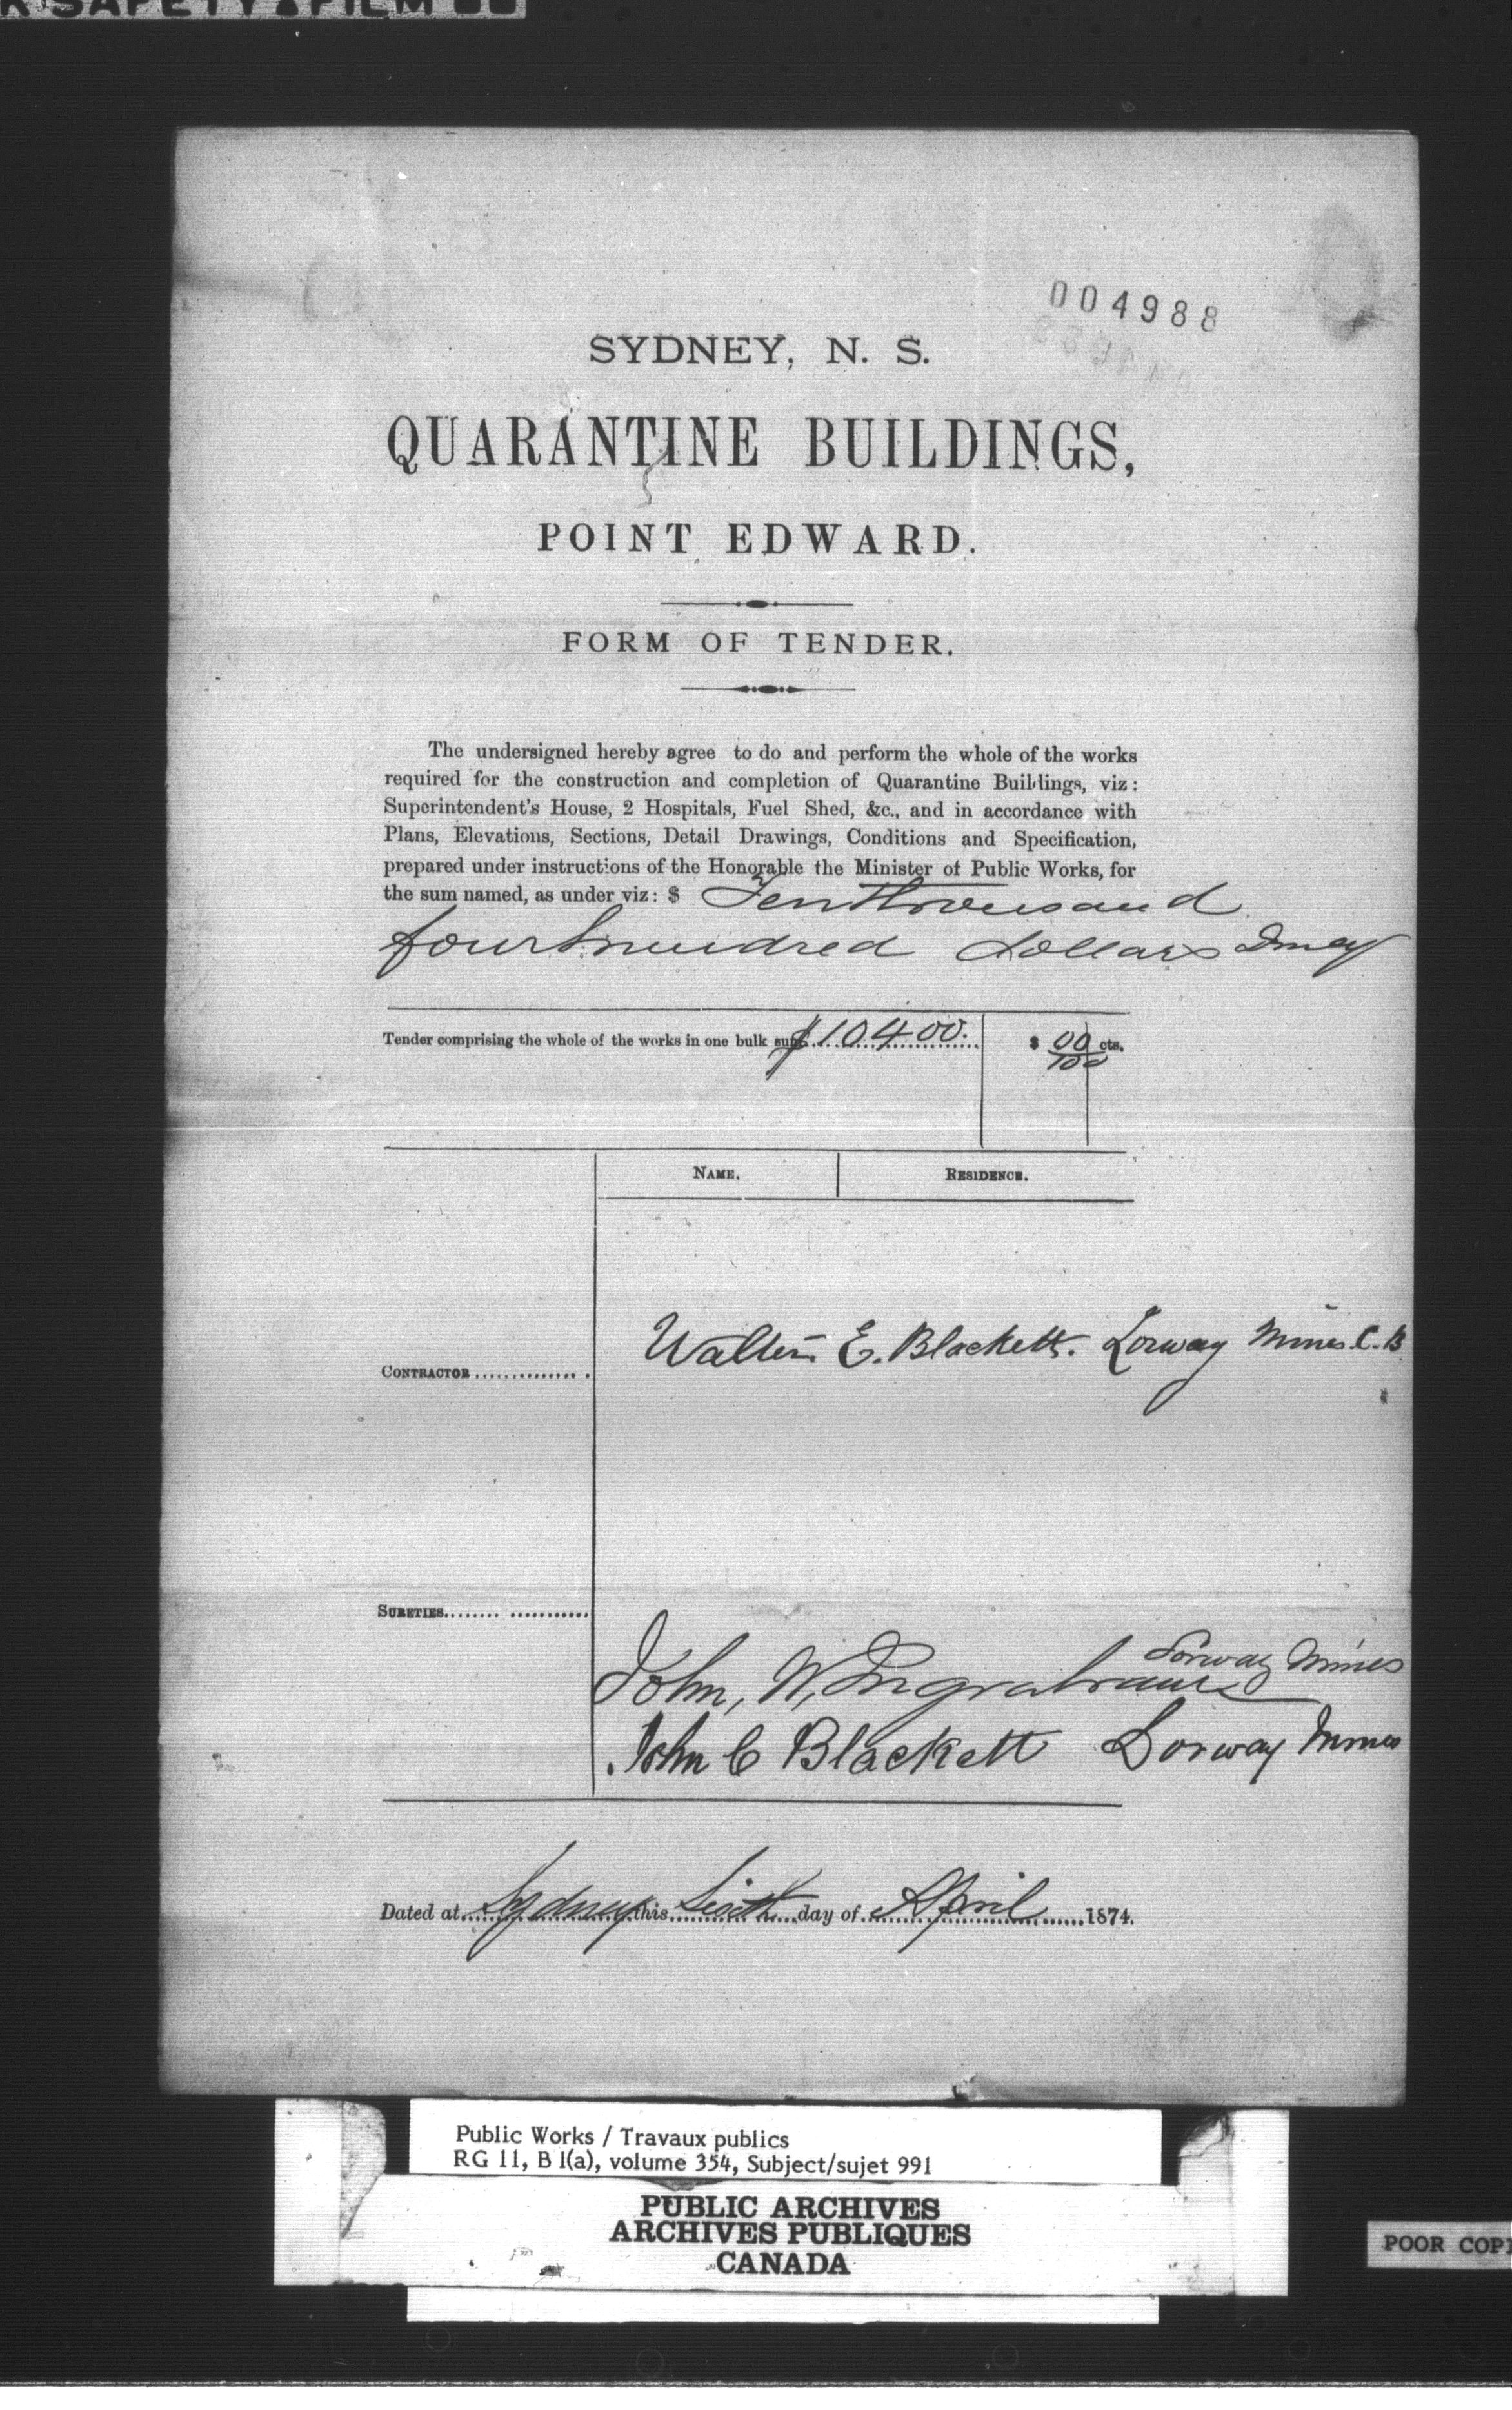 SAFETY FILM
004988
SYDNEY, N. S.
QUARANTINE BUILDINGS,
POINT EDWARD.
FORM OF TENDER.
The undersigned hereby agree to do and perform the whole of the works
required for the construction and completion of Quarantine Buildings, viz:
Superintendent's House, 2 Hospitals, Fuel Shed, &c., and in accordance with
Plans, Elevations, Sections, Detail Drawings, Conditions and Specification,
prepared under instructions of the Honorable the Minister of Public Works, for
the sum named, as under viz: $ Ten thousand
four hundred dollars
Tender comprising the whole of the works in one bulk sum $10400. $ 00/100 cts.
NAME. RESIDENCE.
Walter E. Blackett. Lorway Mines C.B.
CONTRACTOR
SURETIES
Lorway Mines
John, W, Ingraham
John C Blackett Lorway Mines
Dated at Sydney this Sixth day of April 1874.
Public Works / Travaux publics
RG 11, B 1(a), volume 354, Subject/sujet 991
PUBLIC ARCHIVES
ARCHIVES PUBLIQUES
CANADA
POOR COPI